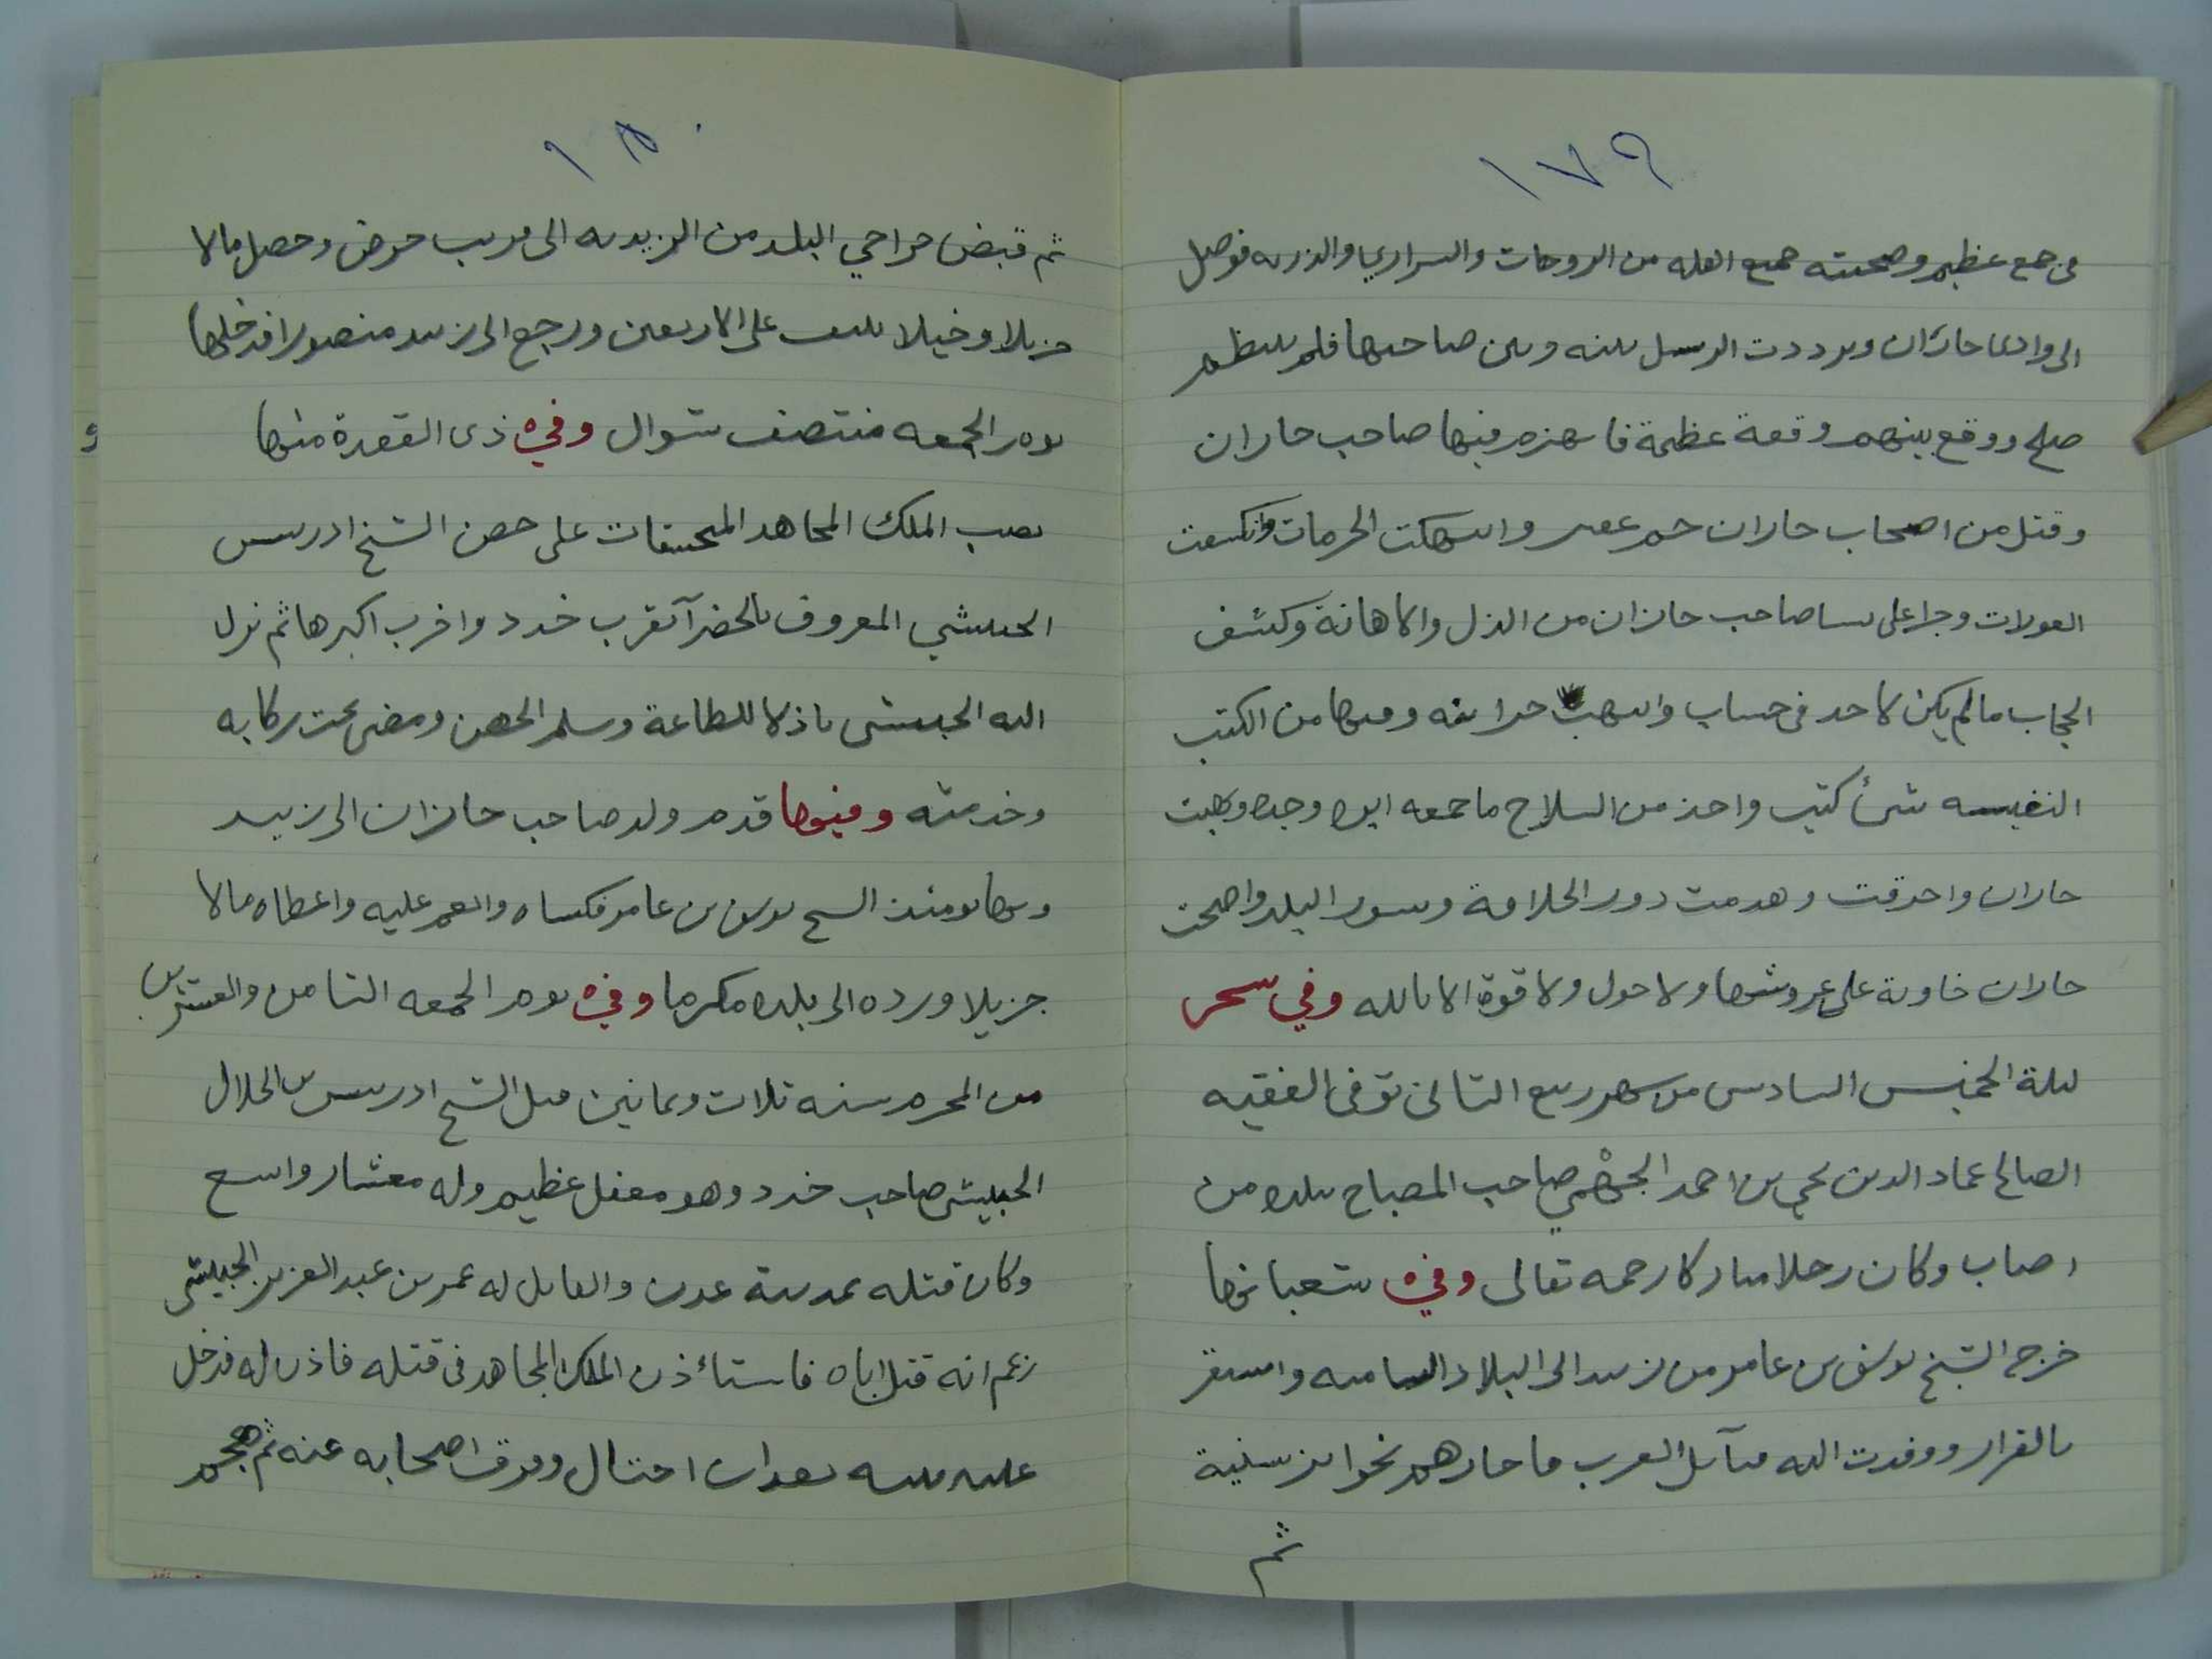 ١٧٩
في جمع عظيم وصحبته جميع اهله من الزوجات والسراري والذريه فوصل
الى وادى جازان وترددت الرسل بينه وبين صاحبها فلم ينتظم
صلح ووقع بينهم وقعة عظيمة فانهزم فيها صاحب جازان
وقتل من اصحاب جازان جم غفير وانتهكت الحرمات وانكشفت
العورات وجرا على نسا صاحب جازان من الذل والاهانة وكشف
الحجاب مالم يكن لاحد في حساب وانتهبت خزاينه وفيها من الكتب
النفيسه شئ كثير واخذ من السلاح ماجمعه ابوه وجده ونهبت
جازان واحرقت وهدمت دور الخلافة وسور البلد واصبحت
جازان خاوية على عروشها ولا حول ولا قوة الا بالله وفي سحر
ليلة الخميس السادس من شهر ربيع الثاني توفى الفقيه
الصالح عماد الدين يحيى بن احمد الجهمي صاحب المصباح ببلده من
اصاب وكان رجلا مباركا رحمه تعالى وفي شعبانها
خرج الشيخ يوسف بن عامر من زبيد الى البلاد الشاميه واستقر
بالقرار ووفدت اليه قبآيل العرب فاجازهم بجوايز سنية
ثم
١٨٠
ثم قبض خراجي البلد من الزيديه الى قريب حرض وحصل مالا
جزيلا وخيلا تنيف على الاربعين ورجع الى زبيد منصورا فدخلها
يوم الجمعه منتصف شوال وفي ذى القعدة منها
نصب الملك المجاهد المنجنيقات على حصن الشيخ ادريس
الحبيشي المعروف بالخضرآ بقرب خدد واخرب اكبرها ثم نزل
اليه الحبيشي باذلا للطاعة وسلم الحصن ومضى تحت ركابه
وخدمته وفيها قدم ولد صاحب جازان الى زبيد
وبها يومئذ الشيخ يوسف بن عامر فكساه وانعم عليه واعطاه مالا
جزيلا ورده الى بلده مكرما وفي يوم الجمعه الثامن والعشرين
من المحرم سنه ثلاث وثمانين قتل الشيخ ادريس بن الجلال
الحبيشي صاحب خدد وهو معقل عظيم وله معشار واسع
وكان قتله بمدينة عدن والقاتل له عمر بن عبد العزيز الحبيشي
زعم انه قتل اباه فاستاءذن الملك المجاهد في قتله فاذن له فدخل
عليه بيته بعد ان احتال وفرق اصحابه عنه ثم هجم